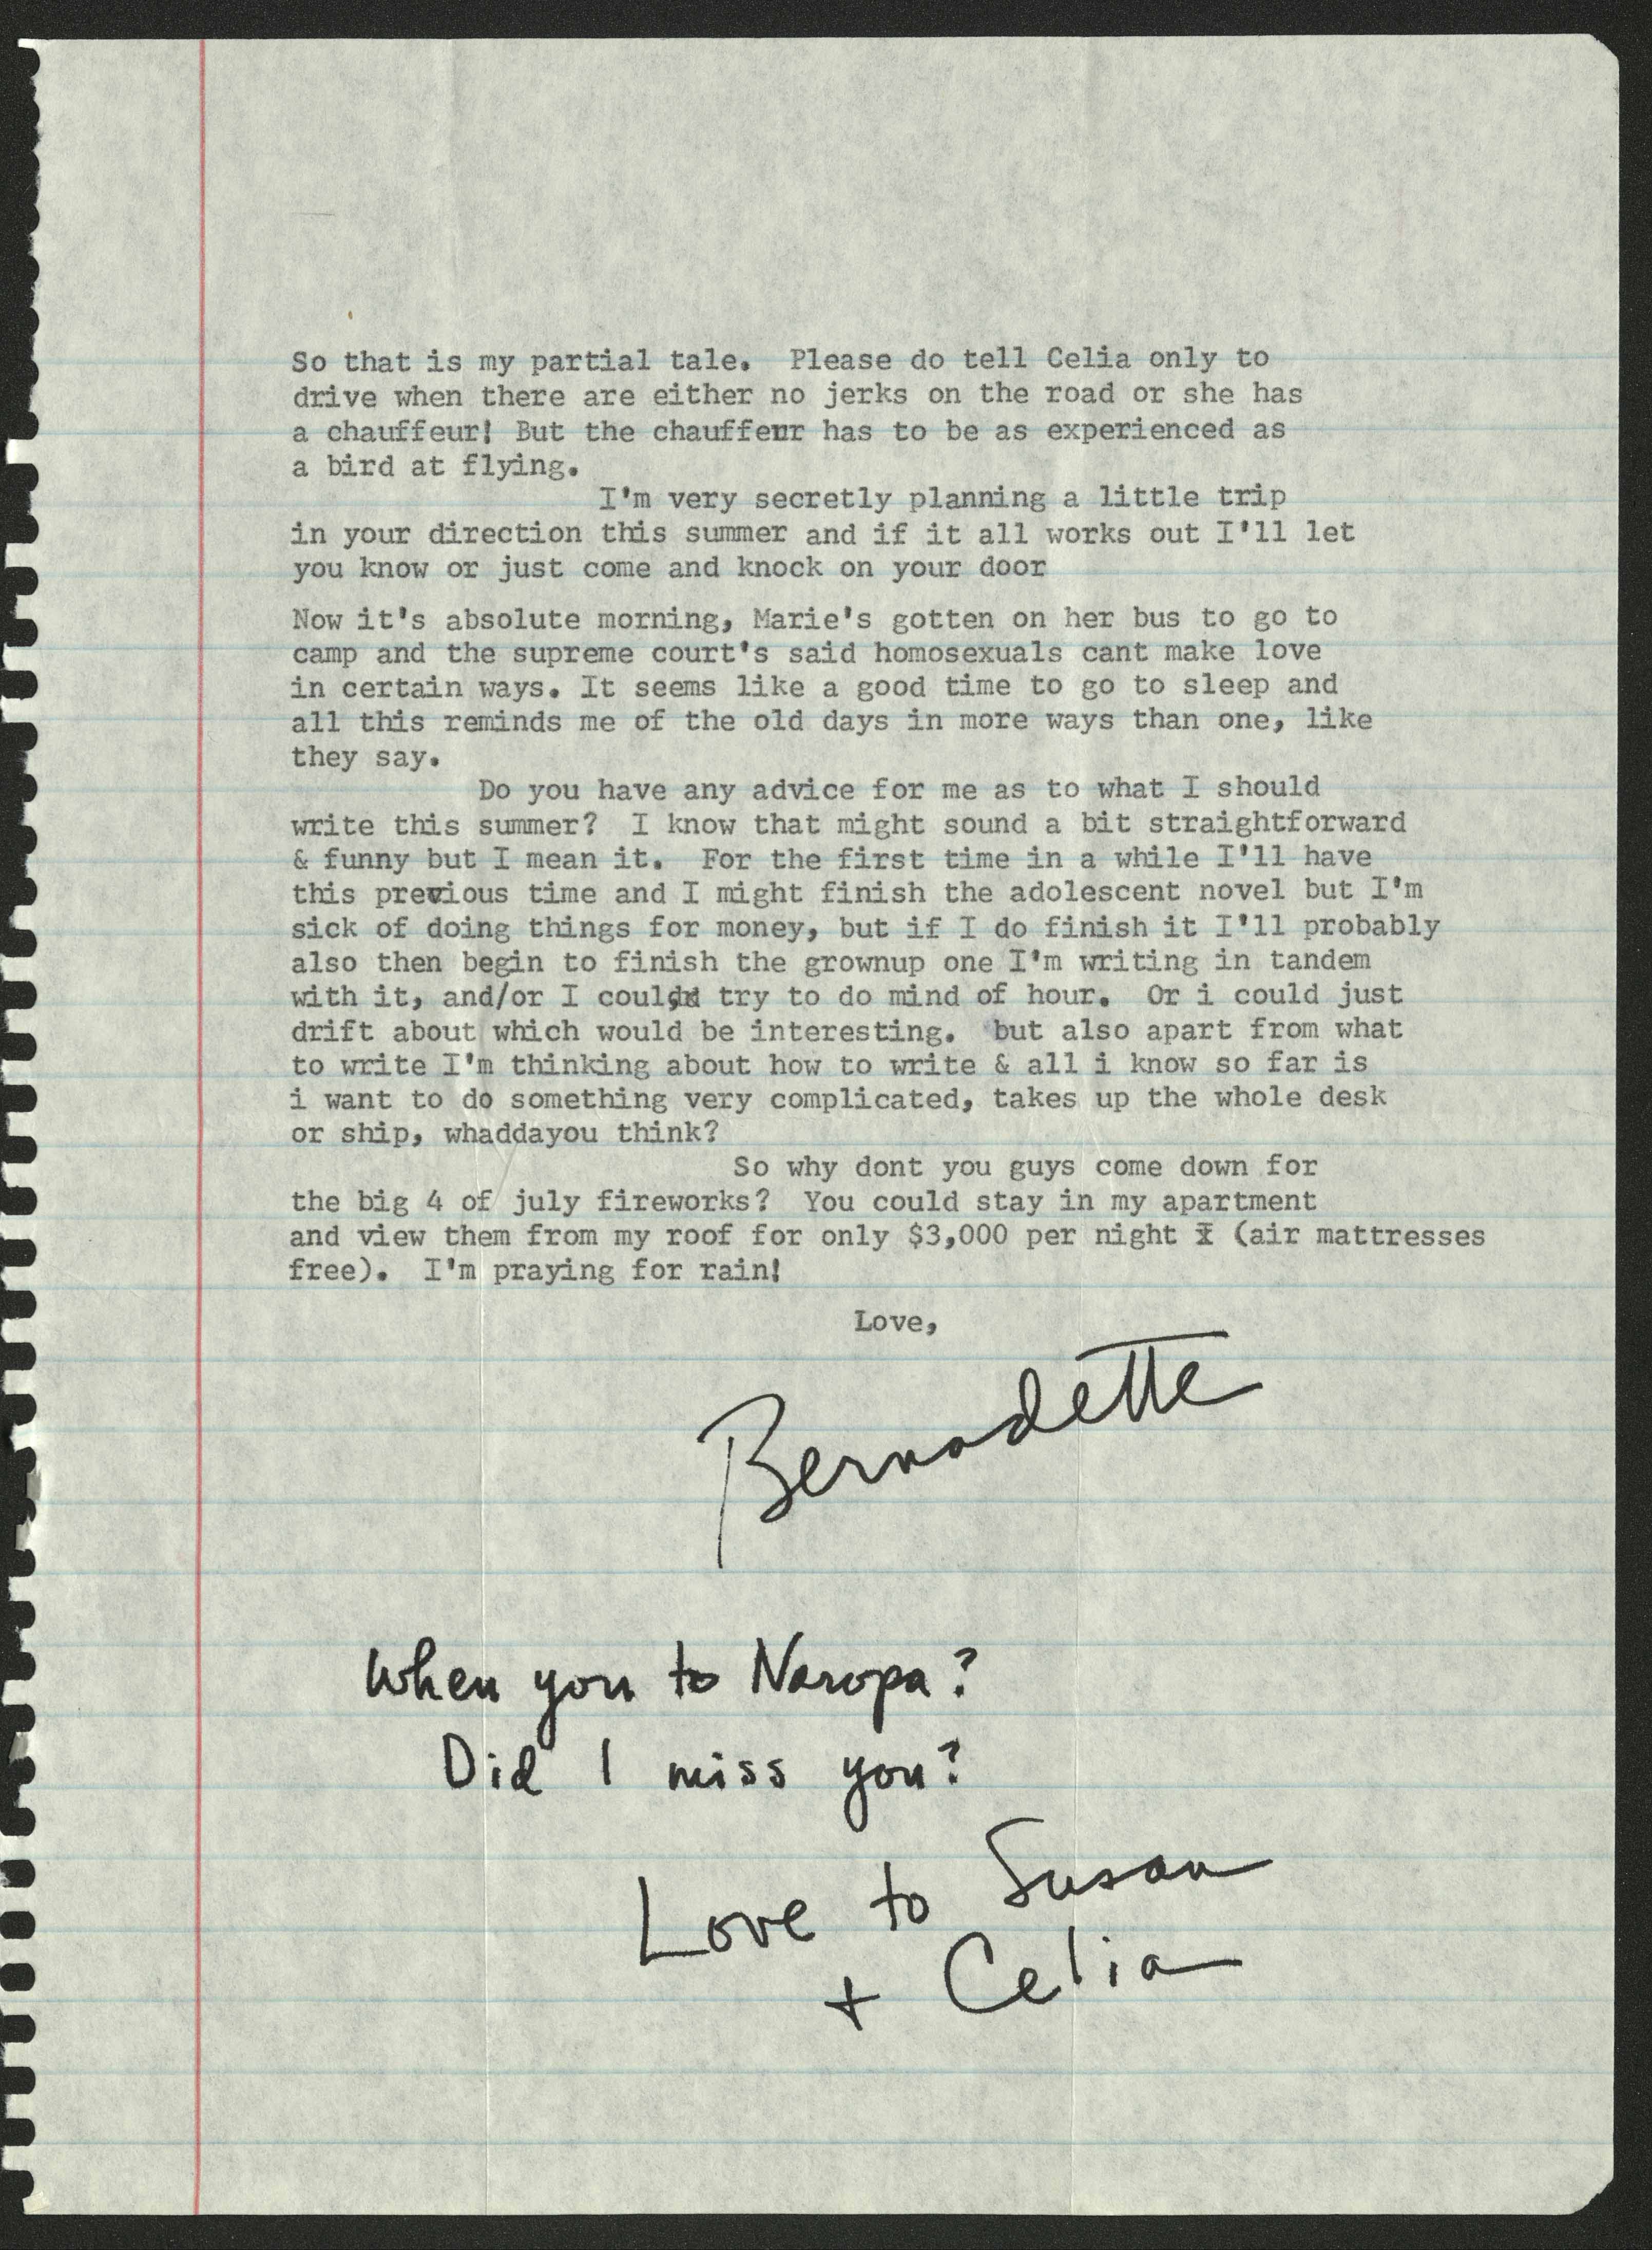 So that is my partial tale.  Please do tell Celia only to
drive when there are either no jerks on the road or she has
a chauffeur! But the chauffeur has to be as experienced as
a bird at flying.
I'm very secretly planning a little trip
in your direction this summer and if it all works out I'll let
you know or just come and knock on your door
Now it's absolute morning, Marie's gotten on her bus to go to
camp and the supreme court's said homosexuals cant make love
in certain ways. It seems like a good time to go to sleep and
all this reminds me of the old days in more ways than one, like
they say.
Do you have any advice for me as to what I should
write this summer?  I know that might sound a bit straightforward
& funny but I mean it.  For the first time in a while I'll have
this previous time and I might finish the adolescent novel but I'm
sick of doing things for money, but if I do finish it I'll probably
also then begin to finish the grownup one I'm writing in tandem
with it, and/or I could try to do mind of hour.  Or i could just
drift about which would be interesting.  but also apart from what
to write I'm thinking about how to write & all i know so far is
i want to do something very complicated, takes up the whole desk
or ship, whaddayou think?
So why dont you guys come down for
the big 4 of july fireworks?  You could stay in my apartment
and view them from my roof for only $3,000 per night (air mattresses
free).  I'm praying for rain!
Love,
Bernadette
When you to Naropa?
Did I miss you?
Love to Susan
+ Celia